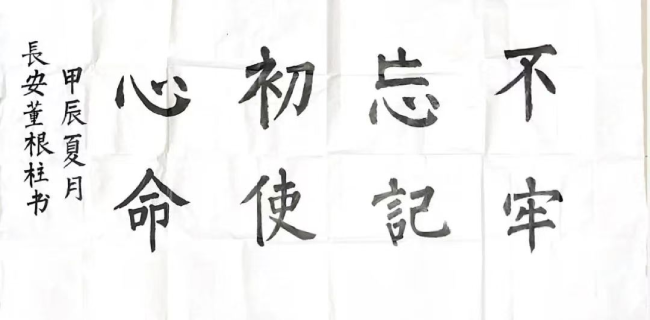 不忘初心
牢記使命
甲辰夏月
長安董根柱书